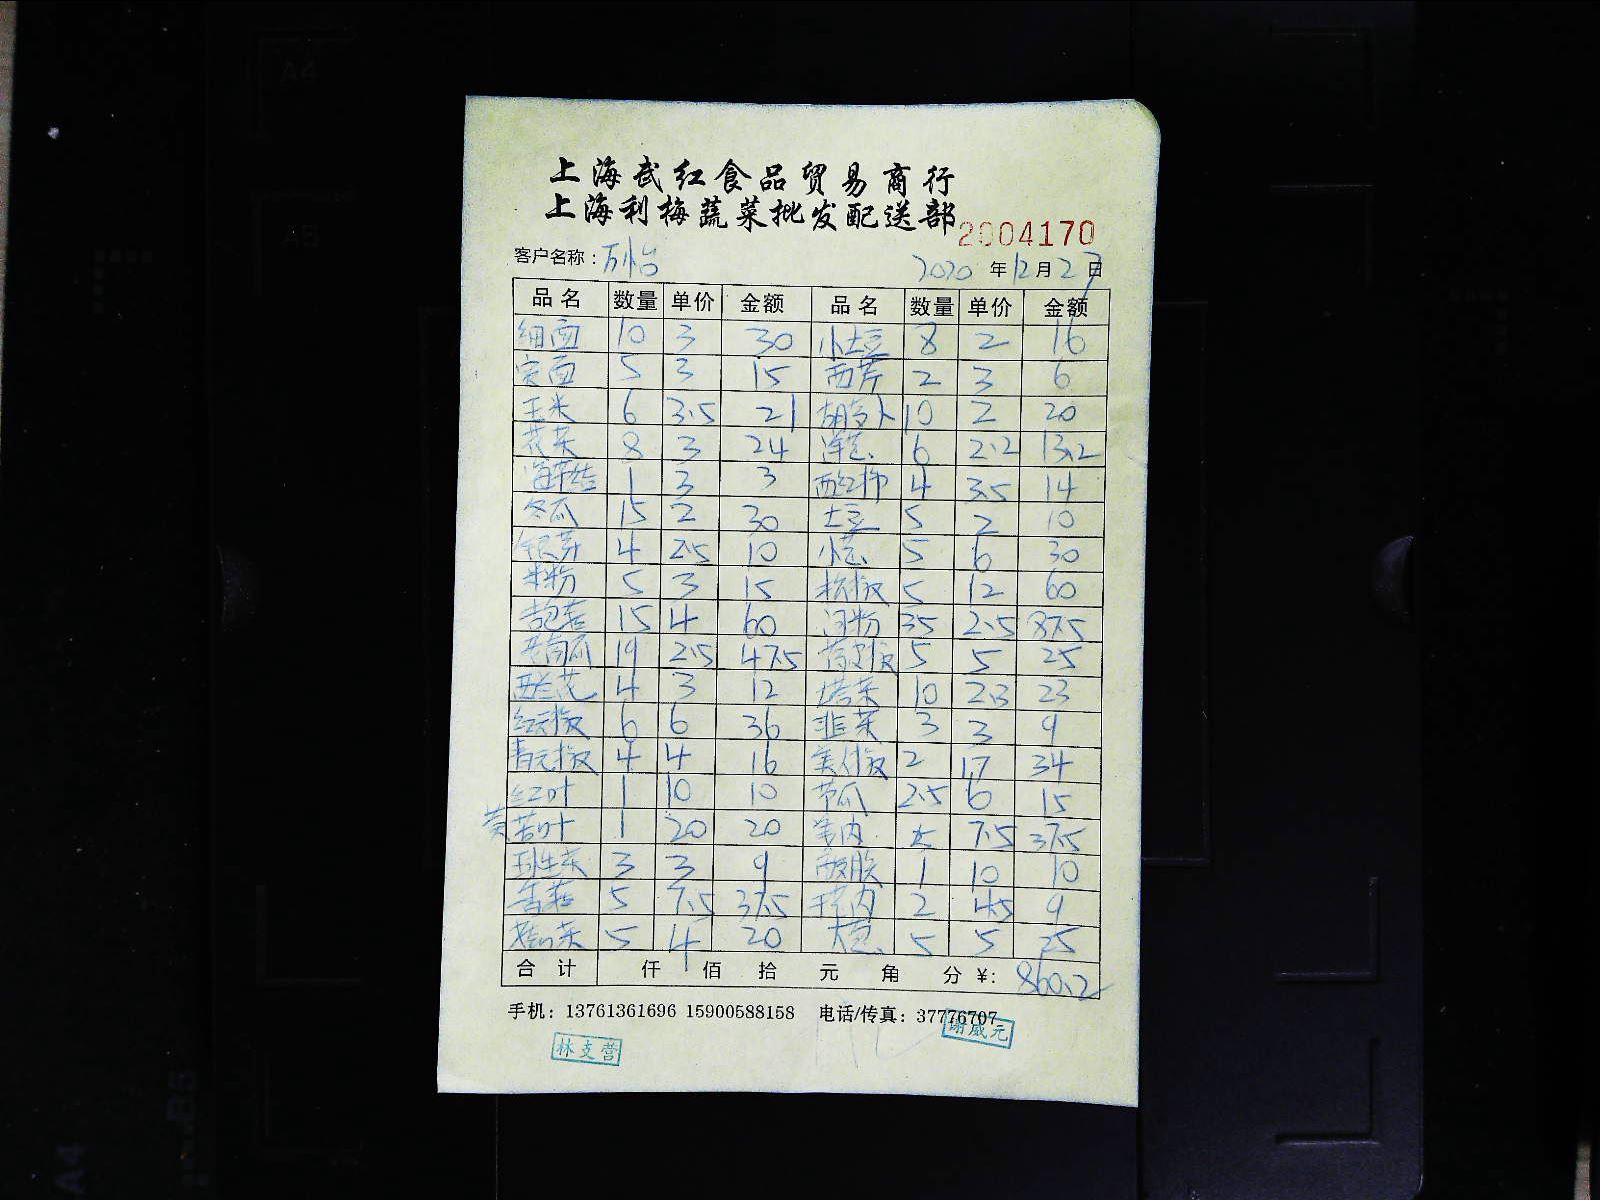 上海武红食品贸易商行
上海利梅蔬菜批发配送部
2004170
客户名称：万怡 2020年12月27日
品名 数量 单价 金额 品名 数量 单价 金额
细面 10 3 30 小土豆 8 2 16
宽面 5 3 15 西芹 2 3 6
玉米 6 3.5 21 胡萝卜 10 2 20
花菜 8 3 24 洋葱 6 2.2 13.2
海带结 1 3 3 西红柿 4 3.5 14
冬瓜 15 2 30 土豆 5 2 10
银芽 4 2.5 10 小葱 5 6 30
米粉 5 3 15 杭椒 5 12 60
15 4 60 河粉 35 2.5 87.5
老南瓜 19 2.5 47.5 5 5 25
西兰花 4 3 12 塔菜 10 2.3 23
红元椒 6 6 36 韭菜 3 3 9
青元椒 4 4 16 美人椒 2 17 34
红叶 1 10 10 节瓜 2.5 6 15
黄苦叶 1 20 20 7.5 37.5
球生菜 3 3 9 1 10 10
香菇 5 7.5 37.5 2 4.5 9
5 4 20 大葱 5 5 25
合计 仟 佰 拾 元 角 分 ¥: 860.2
手机：13761361696 15900588158 电话/传真：37776707
谢威元
林支营